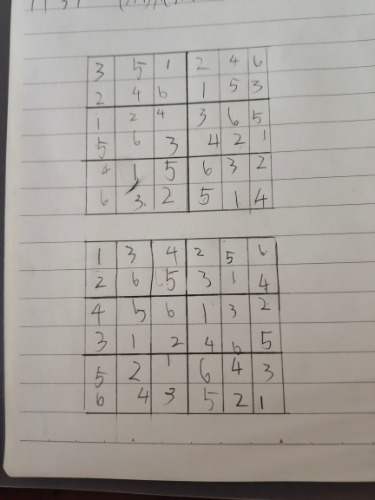 3 5 1 2 4 6
2 4 6 1 5 3
1 2 4 3 6 5
5 6 3 4 2 1
4 1 5 6 3 2
6 3 2 5 1 4
1 3 4 2 5 6
2 6 5 3 1 4
4 5 6 1 3 2
3 1 2 4 6 5
5 2 1 6 4 3
6 4 3 5 2 1